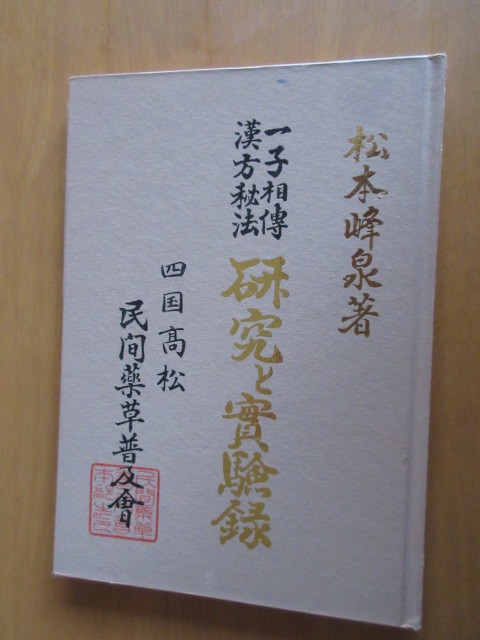 松本峰泉著
一子相傳
漢方秘法
研究と實驗録
四国髙松
民间藥草普及會